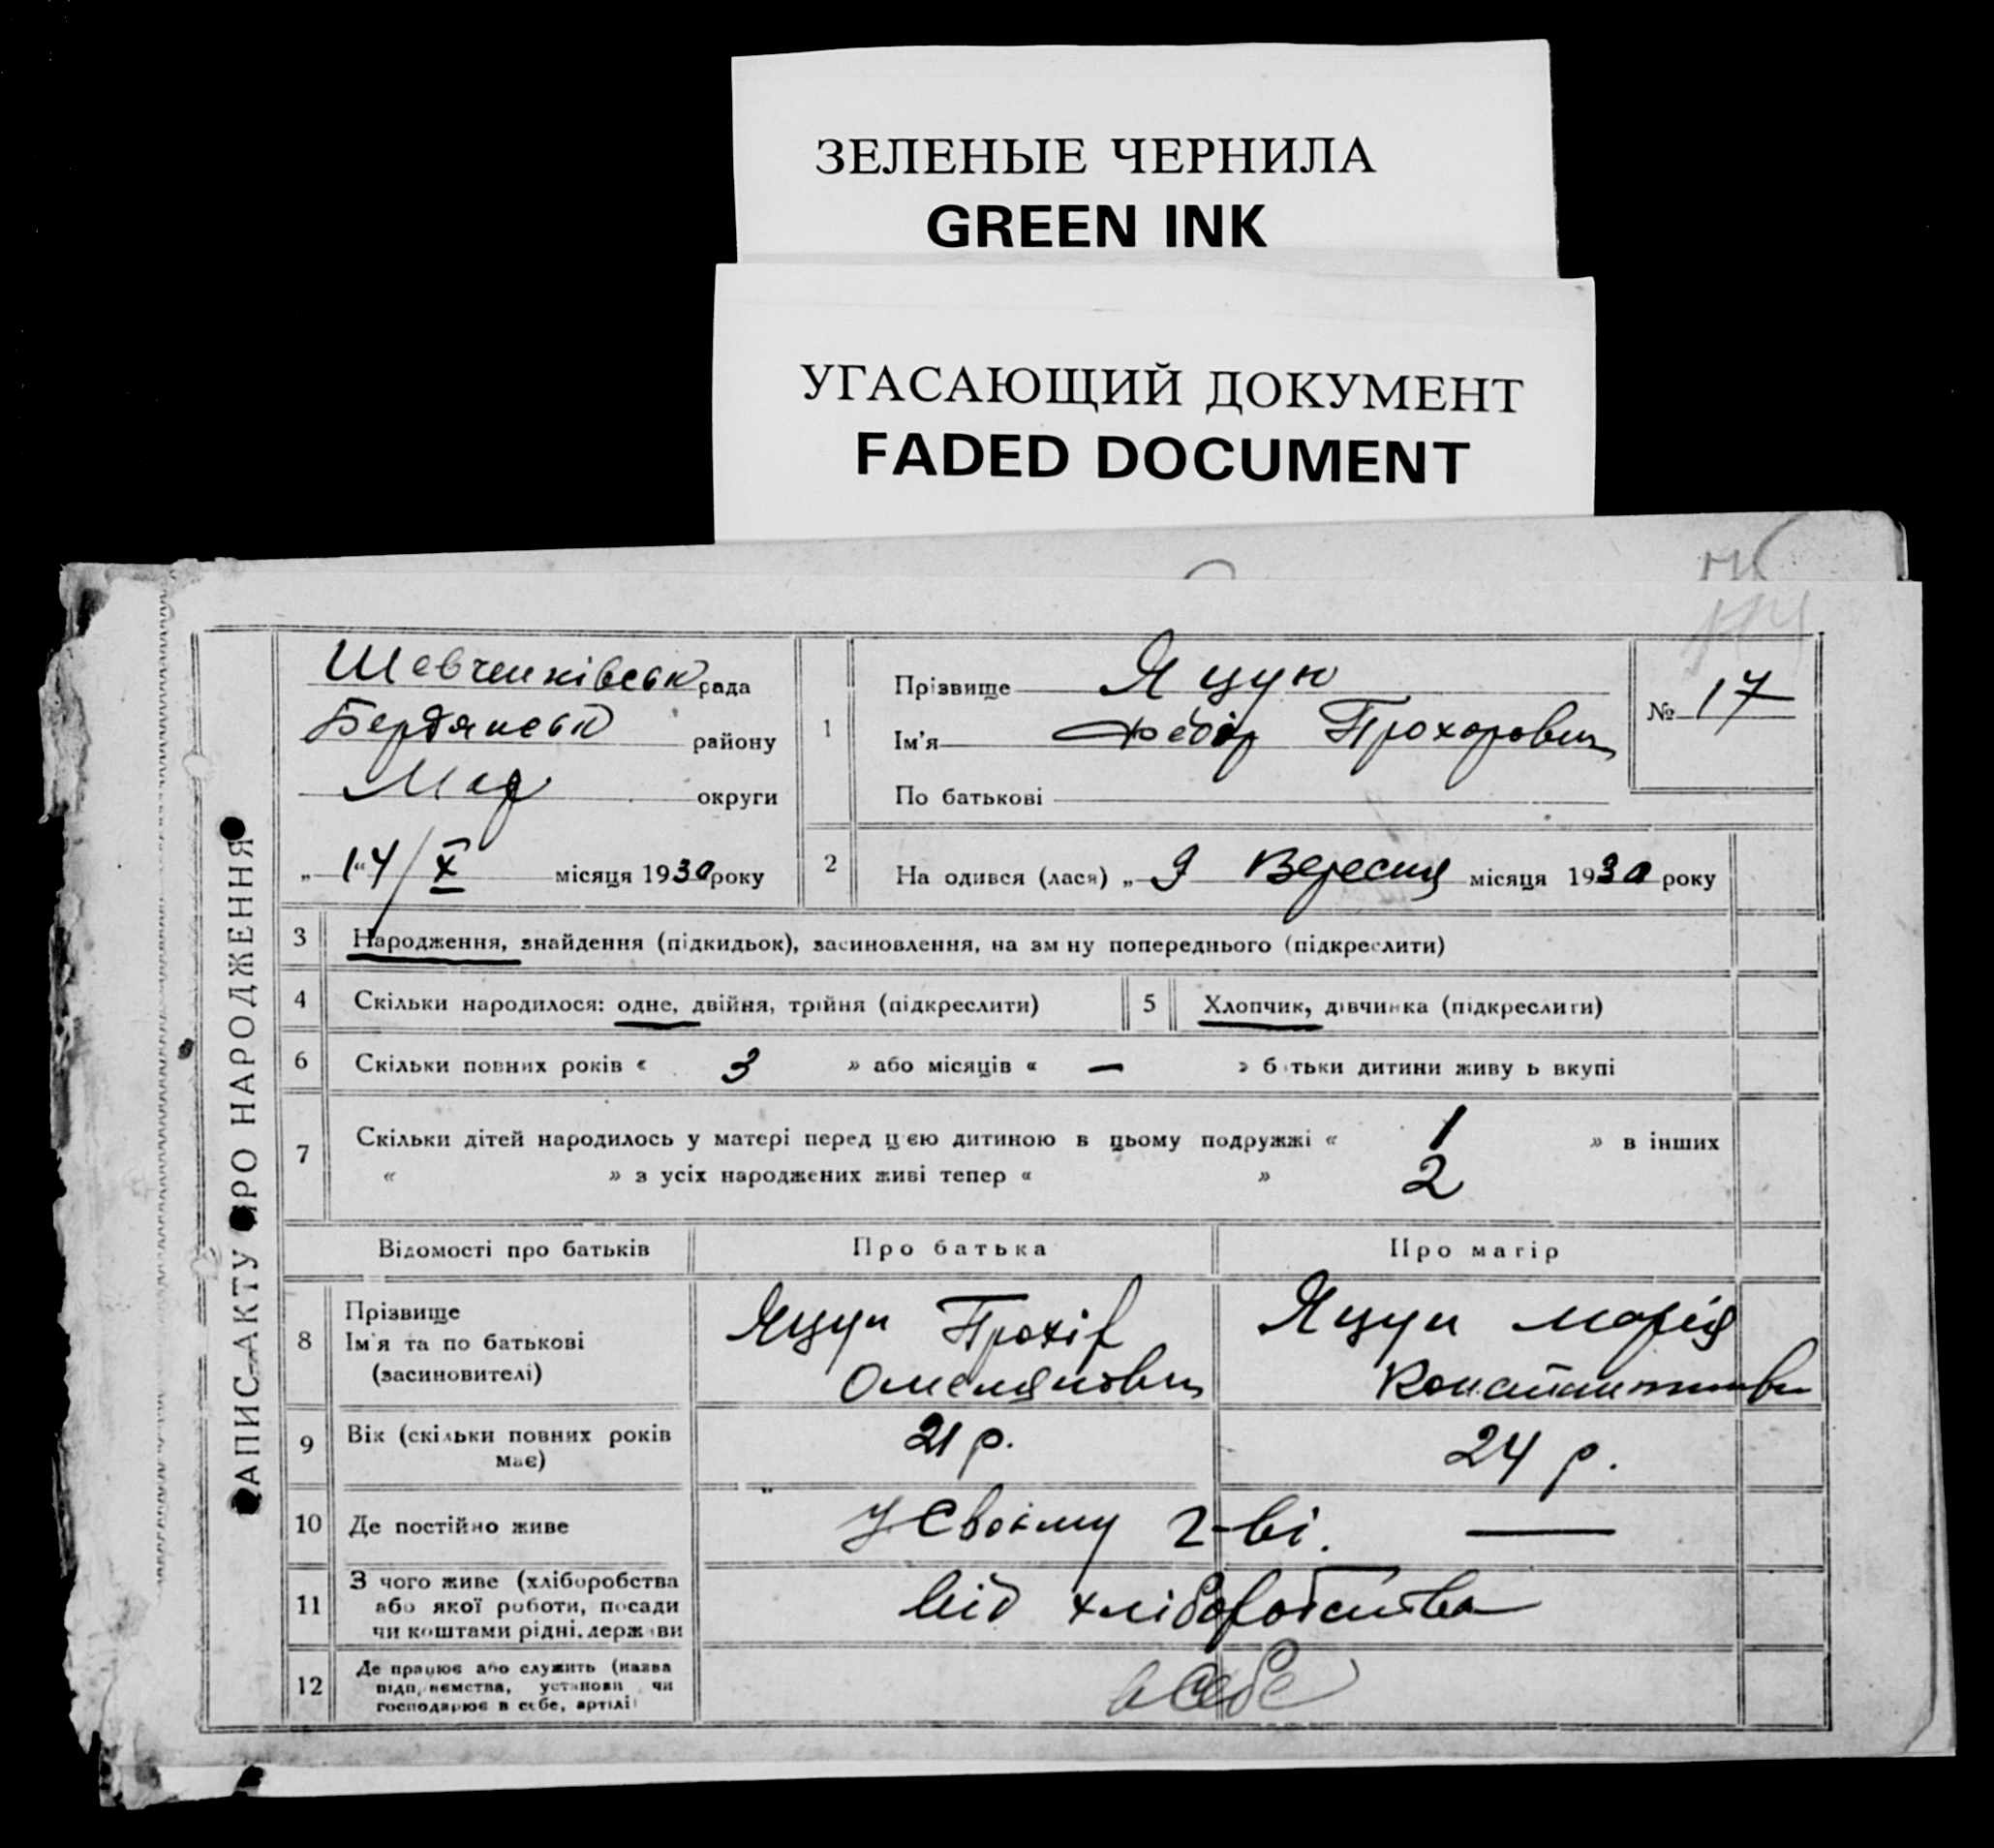 ЗЕЛЕНЫЕ ЧЕРНИЛА
GREEN INK
УГАСАЮЩИЙ ДОКУМЕНТ
FADED DOCUMENT
ЗАПИС АКТУ ПРО НАРОДЖЕННЯ
Шевченківськ рада
Бердянськ району
Мар округи
„14/X місяця 1930 року
1 Прізвище Яцун
Ім'я Федір Прохорович
По батькові
№ 17
2 На одився (лася) „ 9 Вересня місяця 1930 року
3 Народження, знайдення (підкидьок), засиновлення, на зм ну попереднього (підкреслити)
4 Скільки народилося: одне, двійня, трійня (підкреслити) 5 Хлопчик, дівчинка (підкреслити)
6 Скільки повних років « 3 » або місяців « — » б тьки дитини живу ь вкупі
7 Скільки дітей народилось у матері перед цею дитиною в цьому подружжі « 1 » в інших
« » з усіх народжених живі тепер « » 2
Відомості про батьків Про батька Про матір
8 Прізвище
Ім'я та по батькові
(засиновителі)
Яцун Прохір
Омелянович
Яцун Марія
9 Вік (скільки повних років
має)
21 р. 24 р.
10 Де постійно живе У своїму г-ві. —
11 З чого живе (хліборобства
або якої роботи, посади
чи коштами рідні, держ ви
від хліборобства
12 Де працює або служить (назва
підп, немства, установи чи
господарює в себе, артілі
в себе